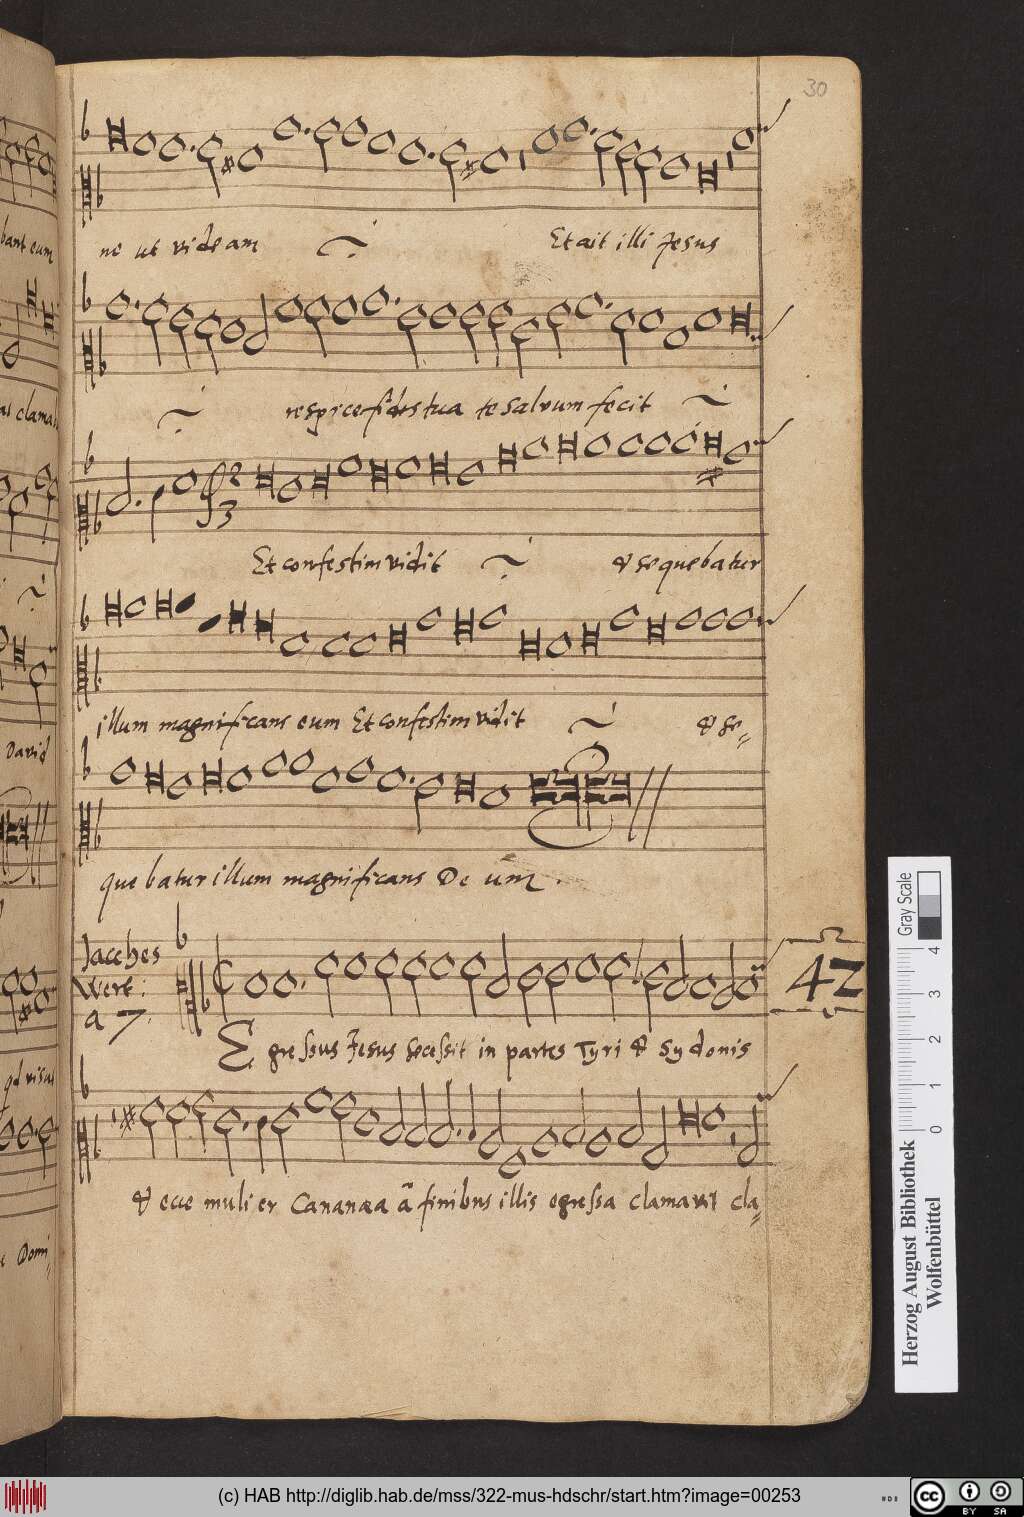 30
ne ut videam
Et ait illi Jesus
respice fides tua te salvum fecit
Et confestim vidit & sequebatur
illum magnificans eum Et confestim vidit & se=
quebatur illum magnificans Deum.
Jacches
Wert:
a 7.
42
Egressus Jesus secessit in partes Tyri & Sydonis
& ecce mulier Cananæa a finibus illis egressa clamavit cla=
bant eum
David
qd visa
Domi=
Gray Scale
4 3 2 1 0
Herzog August Bibliothek
Wolfenbüttel
(c) HAB http://diglib.hab.de/mss/322-mus-hdschr/start.htm?image=00253
cc BY SA